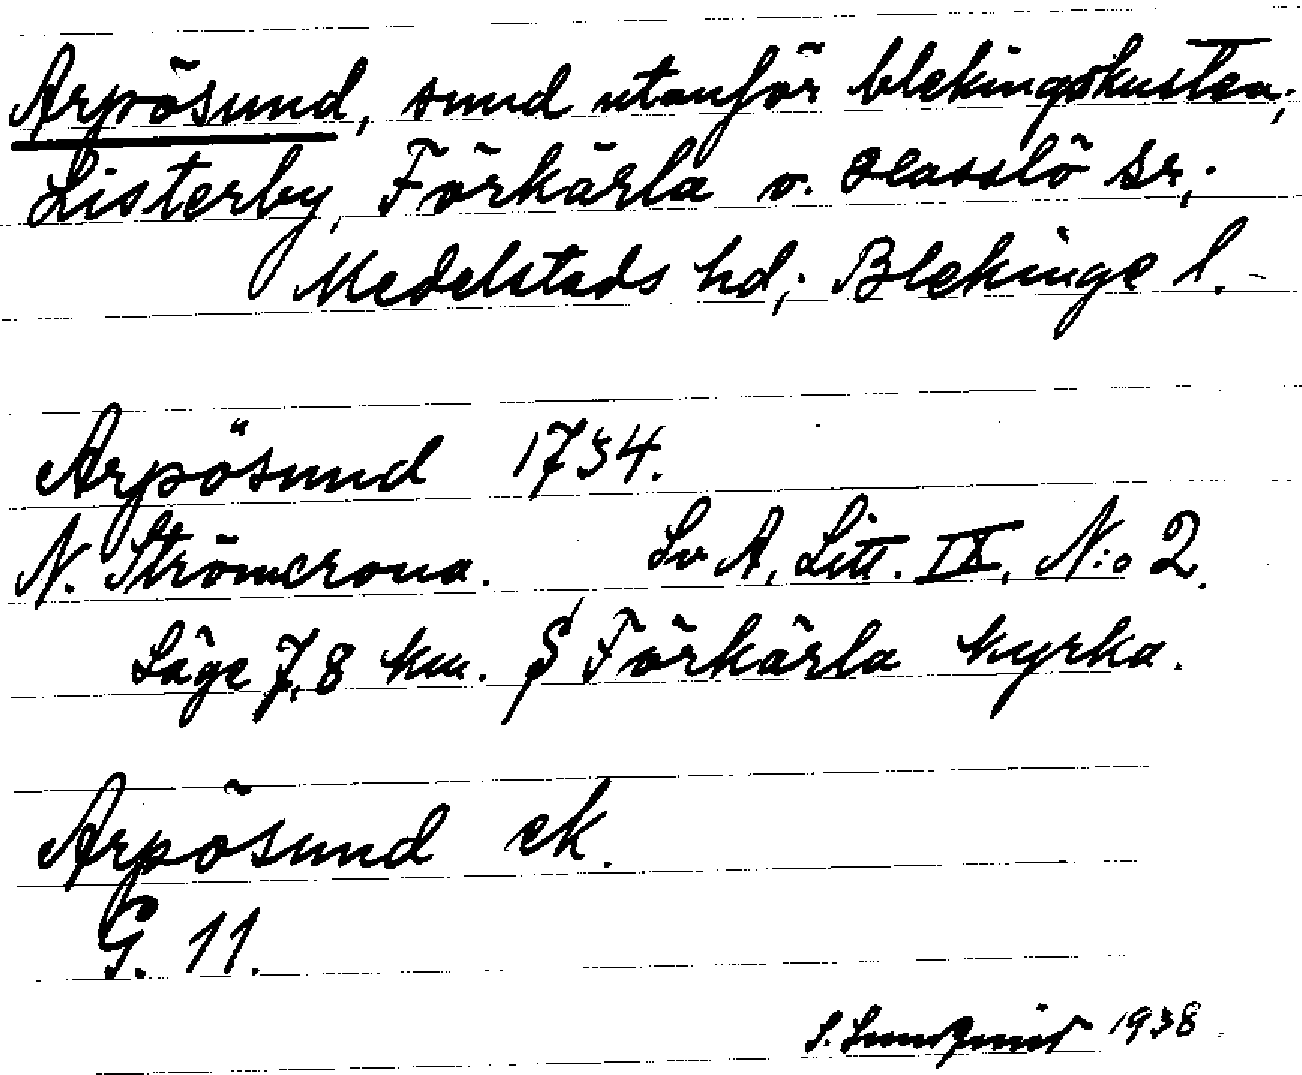 Arpösund, sund utanför blekingskusten;
Listerby, Förkärla o. Hasslö sr;
Medelstads hd; Blekinge l.
Arpösund 1734.
N. Strömcrona. Sv A, Litt. IX, N:o 2.
Läge 7,8 km. S Förkärla kyrka.
Arpösund ek.
G. 11.
S. 1938